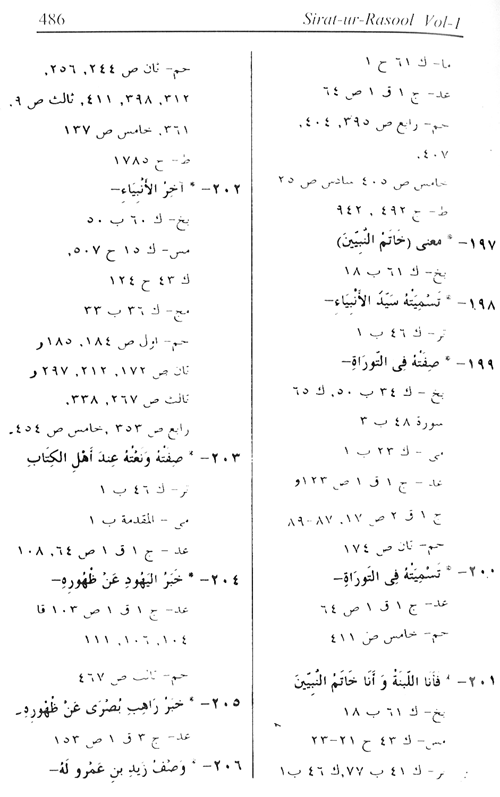 486
Sirat-ur-Rasool Vol-1
ما- ك ٦١ ح ١
عد- ج ١ ق ١ ص ٦٤
حم- رابع ص ٣٩٥, ٤٠٤,
٤٠٧,
خامس ص ٤٠٥ سادس ص ٢٥
ط- ح ٤٩٢ , ٩٤٢
١٩٧- * معنى (خَاتَمْ النُّبِيّينَ)
بخ- ك ٦١ ب ١٨
١٩٨- * تَسْمِيَتْهُ سَيِّدَ الأَنْبِيَاءِ-
تر- ك ٤٦ ب ١
١٩٩- * صِفَتْهُ فِى التَّورَاةِ-
بخ- ك ٣٤ ب ٥٠, ك ٦٥
سورة ٤٨ ب ٣
مى- ك ٢٣ ب ١
عد- ج ١ ق ١ ص ١٢٣و
ج ١ ق ٢ ص ١٧, ٨٧-٨٩
حم- ثان ص ١٧٤
٢٠٠- * تَسْمِيَتْهُ فِى التَّورَاةِ-
عد- ج ١ ق ١ ص ٦٤
حم- خامس ص ٤١١
٢٠١- * فَأنَا اللّبنَةُ وَ أنَا خَاتَمْ النُّبِيّينَ
بخ- ك ٦١ ب ١٨
مس- ك ٤٣ ح ٢١-٢٣
تر- ك ٤١ ب ٧٧, ك ٤٦ ب١
حم- ثان ص ٢٤٤, ٢٥٦,
٣١٢, ٣٩٨, ٤١١, ثالث ص ٩,
٣٦١, خامس ص ١٣٧
ط- ح ١٧٨٥
٢٠٢- * آخِرُ الأَنْبِيَاءِ-
بخ- ك ٦٠ ب ٥٠
مس- ك ١٥ ح ٥٠٧,
ك ٤٣ ح ١٢٤
مج- ك ٣٦ ب ٣٣
حم- اول ص ١٨٤, ١٨٥ و
ثان ص ١٧٢, ٢١٢, ٢٩٧ و
ثالث ص ٢٦٧, ٣٣٨,
رابع ص ٣٥٣ ,خامس ص ٤٥٤-
٢٠٣- * صِفتْهُ وَنَعْتْهُ عِندَ أَهْلِ الكِتَابِ
تر- ك ٤٦ ب ١
مى- المقدمة ب ١
عد- ج ١ ق ١ ص ٦٤, ١٠٨
٢٠٤- * خَبَرُ اليَهُودِ عَنْ ظُهُورِهِ-
عد- ج ١ ق ١ ص ١٠٣ قا
١٠٤, ١٠٦, ١١١
حم- ثالث ص ٤٦٧
٢٠٥- * خَبَرُ رَاهِبِ بُصْرَى عَنْ ظُهُورِهِ-
عد- ج ٣ ق ١ ص ١٥٣
٢٠٦- * وَصْفُ زَيدِ بنِ عَمْرو لَهُ-